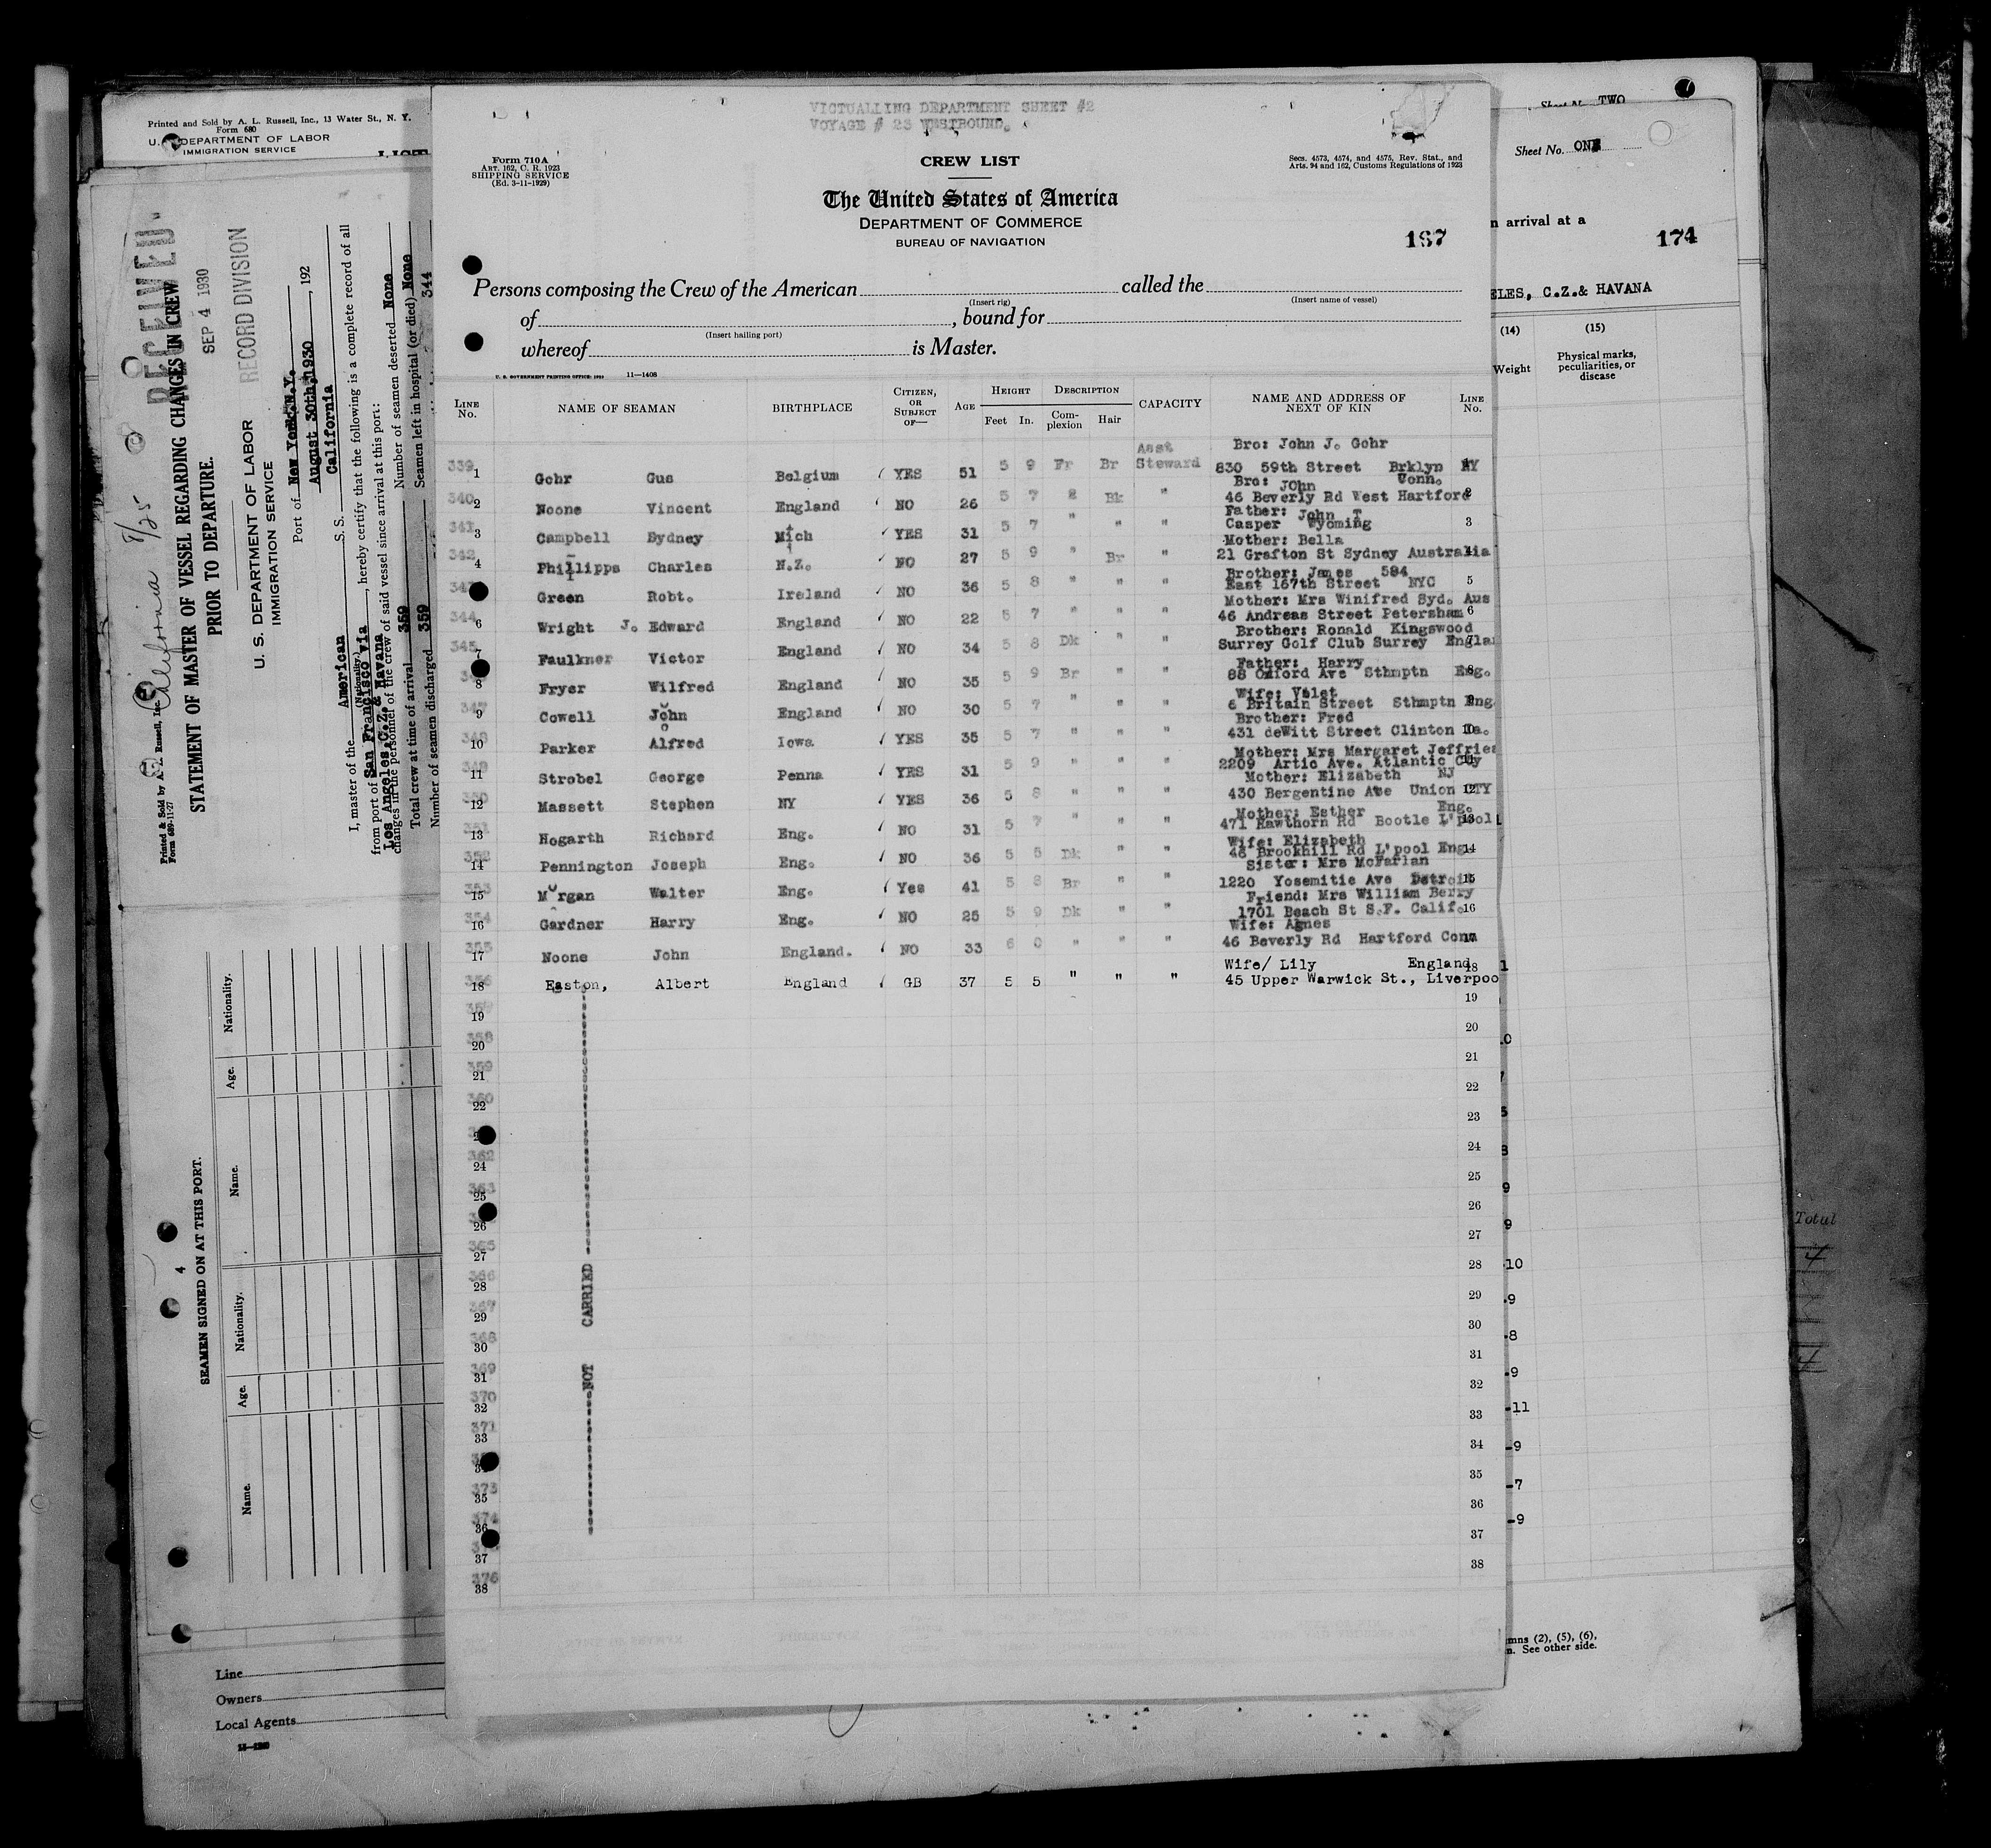 VICTUALLING DEPARTMENT SHEET #2
VOYAGE # 23 WESTBOUND.
Form 710A
ART. 162, C. R. 1923
SHIPPING SERVICE
(Ed. 3-11-1929)
CREW LIST
Secs. 4573, 4574, and 4575, Rev. Stat., and
Arts. 94 and 162, Customs Regulations of 1923
The United States of America
DEPARTMENT OF COMMERCE
BUREAU OF NAVIGATION
167
Persons composing the Crew of the American called the
(Insert rig) (Insert name of vessel)
of , bound for
(Insert hailing port)
whereof is Master.
U. S. GOVERNMENT PRINTING OFFICE: 11—1408
LINE No. NAME OF SEAMAN BIRTHPLACE CITIZEN, OR SUBJECT OF— AGE HEIGHT Feet In. DESCRIPTION Complexion Hair CAPACITY NAME AND ADDRESS OF NEXT OF KIN LINE No.
Asst Bro: John J. Gohr
339 1 Gohr Gus Belgium YES 51 5 9 Fr Br Steward 830 59th Street Brklyn NY
Bro: JOhn Conn.
340 2 Noone Vincent England NO 26 5 7 Bk " 46 Beverly Rd West Hartford 2
Father: John T
341 3 Campbell Sydney Mich YES 31 5 7 " " " Casper Wyoming 3
Mother: Bella
342 4 Phillipps Charles N.Z. NO 27 5 9 " Br " 21 Grafton St Sydney Australia
Brother: James 584
Green Robt. Ireland NO 36 5 8 " " " East 167th Street NYC 5
Mother: Mrs Winifred Syd. Aus
344 6 Wright J. Edward England NO 22 5 7 " " " 46 Andreas Street Petersham 6
Brother: Ronald Kingswood
345 7 Faulkner Victor England NO 34 5 8 Dk " " Surrey Golf Club Surrey Englan
Father: Harry
8 Fryer Wilfred England NO 35 5 9 Br " " 88 Oxford Ave Sthmptn Eng.
Wife: Vilet
347 9 Cowell John England NO 30 5 7 " " " 6 Britain Street Sthmptn Eng
Brother: Fred
348 10 Parker Alfred Iowa YES 35 5 7 " " " 431 deWitt Street Clinton Ia.
Mother: Mrs Margaret Jeffries
349 11 Strobel George Penna YES 31 5 9 " " " 2209 Artic Ave. Atlantic City
Mother: Elizabeth NJ
350 12 Massett Stephen NY YES 36 5 8 " " " 430 Bergentine Ave Union CTY
Mother: Esther Eng.
351 13 Hogarth Richard Eng. NO 31 5 7 " " " 471 Hawthorn Rd Bootle L'pool
Wife: Elizabeth
352 14 Pennington Joseph Eng. NO 36 5 5 Dk " " 48 Brookhill Rd L'pool Eng. 14
Sister: Mrs McFarlan
353 15 Morgan Walter Eng. Yes 41 5 8 Br " " 1220 Yosemitie Ave Detroit 15
Friend: Mrs William Berry
354 16 Gardner Harry Eng. NO 25 5 9 Dk " " 1701 Beach St S.F. Calif. 16
Wife: Agnes
355 17 Noone John England. NO 33 6 0 " " " 46 Beverly Rd Hartford Conn
Wife/ Lily England 18
356 18 Easton, Albert England GB 37 5 5 " " " 45 Upper Warwick St., Liverpoo
19 19
358 20 20
359 21 21
360 22 22
23
362 24 24
363 25 25
26 26
365 27 27
366 28 28
367 29 29
368 30 30
369 31 31
370 32 32
371 33 33
34
373 35 35
374 36 36
37 37
376 38 38
NOT CARRIED
Printed and Sold by A. L. Russell, Inc., 13 Water St., N. Y.
Form 680
U. S. DEPARTMENT OF LABOR
IMMIGRATION SERVICE
California 8/25
Printed & Sold by A. L. Russell, Inc.
Form 689-11-27
RECEIVED
SEP 4 1930
RECORD DIVISION
STATEMENT OF MASTER OF VESSEL REGARDING CHANGES IN CREW
PRIOR TO DEPARTURE.
U. S. DEPARTMENT OF LABOR
IMMIGRATION SERVICE
Port of New York, N.Y.
August 30th, 1930 , 192
I, master of the American S. S. California
(Nationality.)
from port of San Francisco via , hereby certify that the following is a complete record of all
Los Angeles, C.Z. & Havana
changes in the personnel of the crew of said vessel since arrival at this port:
Total crew at time of arrival 359 Number of seamen deserted None
Number of seamen discharged 359 Seamen left in hospital (or died) None
344
4
SEAMEN SIGNED ON AT THIS PORT.
Name. Age. Nationality. Name. Age. Nationality.
Line
Owners
Local Agents
Sheet No. TWO
Sheet No. ONE
n arrival at a
174
ELES, C.Z.& HAVANA
(14) (15)
Weight Physical marks, peculiarities, or disease
-10
-9
-8
-9
-11
-9
-7
-9
mns (2), (5), (6),
n. See other side.
Total
4
4